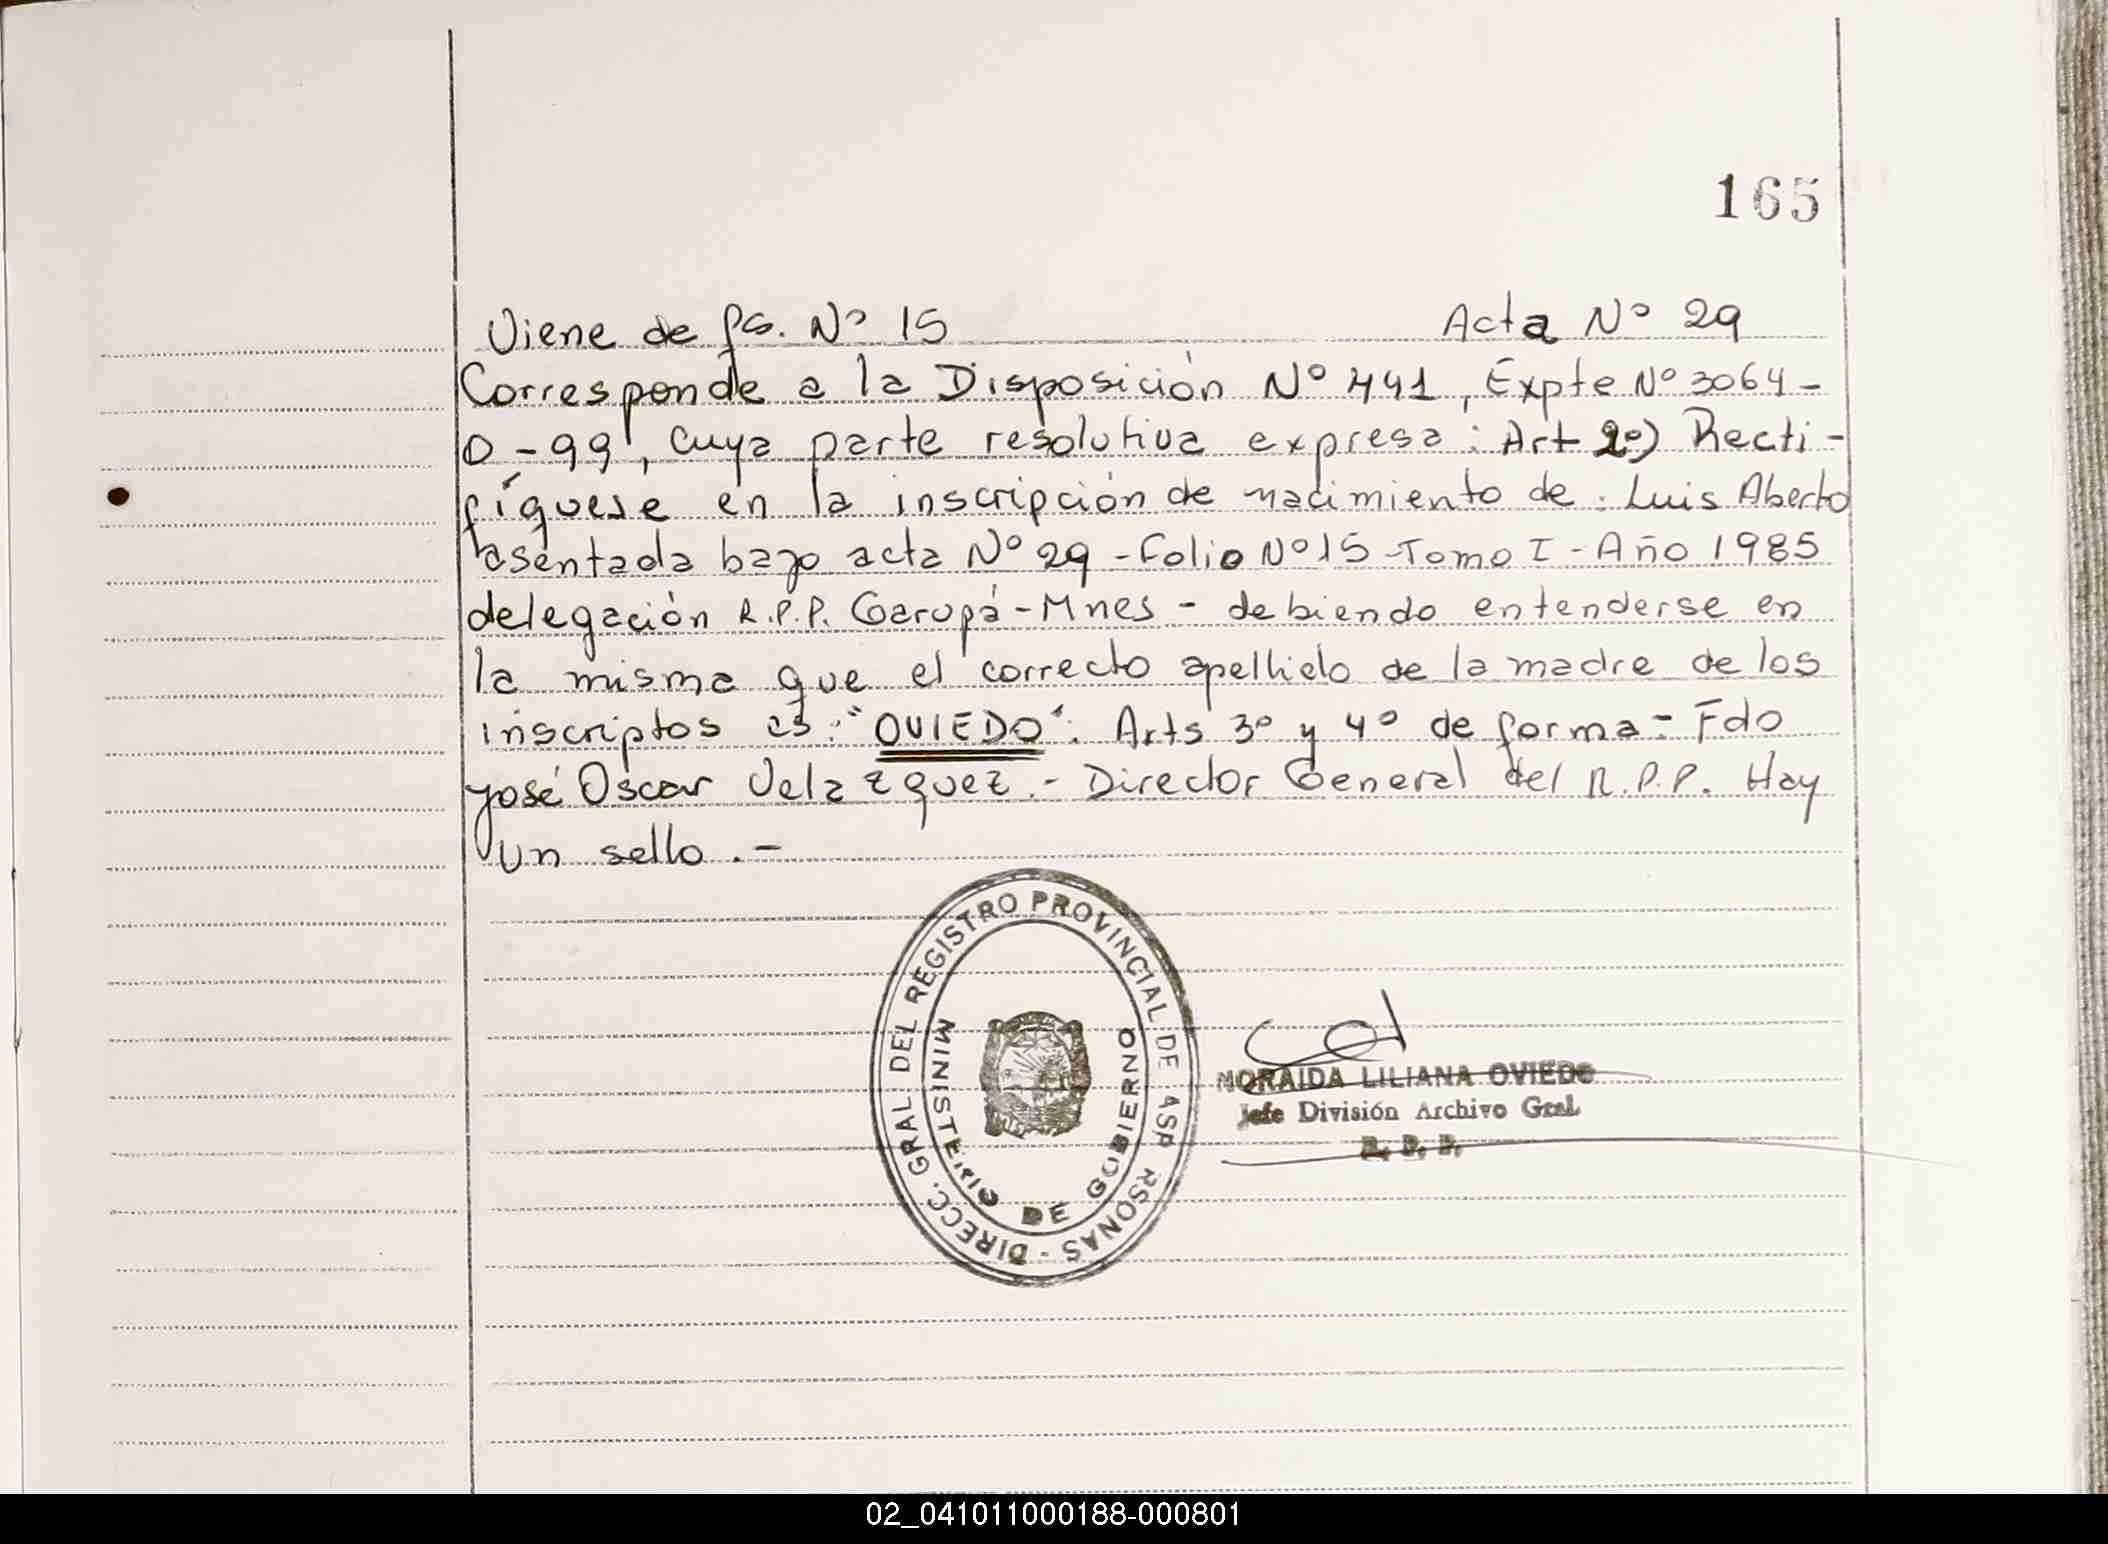 165
Viene de fs. Nº 15 Acta Nº 29
Corresponde a la Disposición Nº 441, Expte Nº 3064-
O-99, cuya parte resolutiva expresa: Art 2º) Recti-
fíquese en la inscripción de nacimiento de: Luis Aberto
asentada bajo acta Nº 29 - Folio Nº 15 - Tomo I - Año 1985
delegación R.P.P. Garupá - Mnes - debiendo entenderse en
la misma que el correcto apellido de la madre de los
inscriptos es: "OVIEDO". Arts 3º y 4º de forma = Fdo
José Oscar Velazquez.- Director General del R.P.P. Hay
un sello.-
DIRECC. GRAL. DEL REGISTRO PROVINCIAL DE LAS PERSONAS -
MINISTERIO DE GOBIERNO
NORAIDA LILIANA OVIEDO
Jefe División Archivo Gral.
R. P. P.
02_041011000188-000801